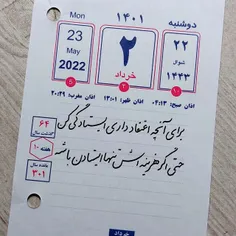 Mon
23
May
2022
5
۱۴۰۱
۲
خرداد
۳
دوشنبه
۲۲
شوال
۱۴۴۳
۱۰
اذان صبح: ۰۴:۱۳ اذان ظهر: ۱۳:۰۱ اذان مغرب: ۲۰:۲۹
۶۴
گذشت سال
هفته ۱۰
مانده سال
۳۰۱
برای آنچه اعتقاد داری ایستادگی کن
حتی اگر هزینه اش تنها ایستادن باشد
خرداد